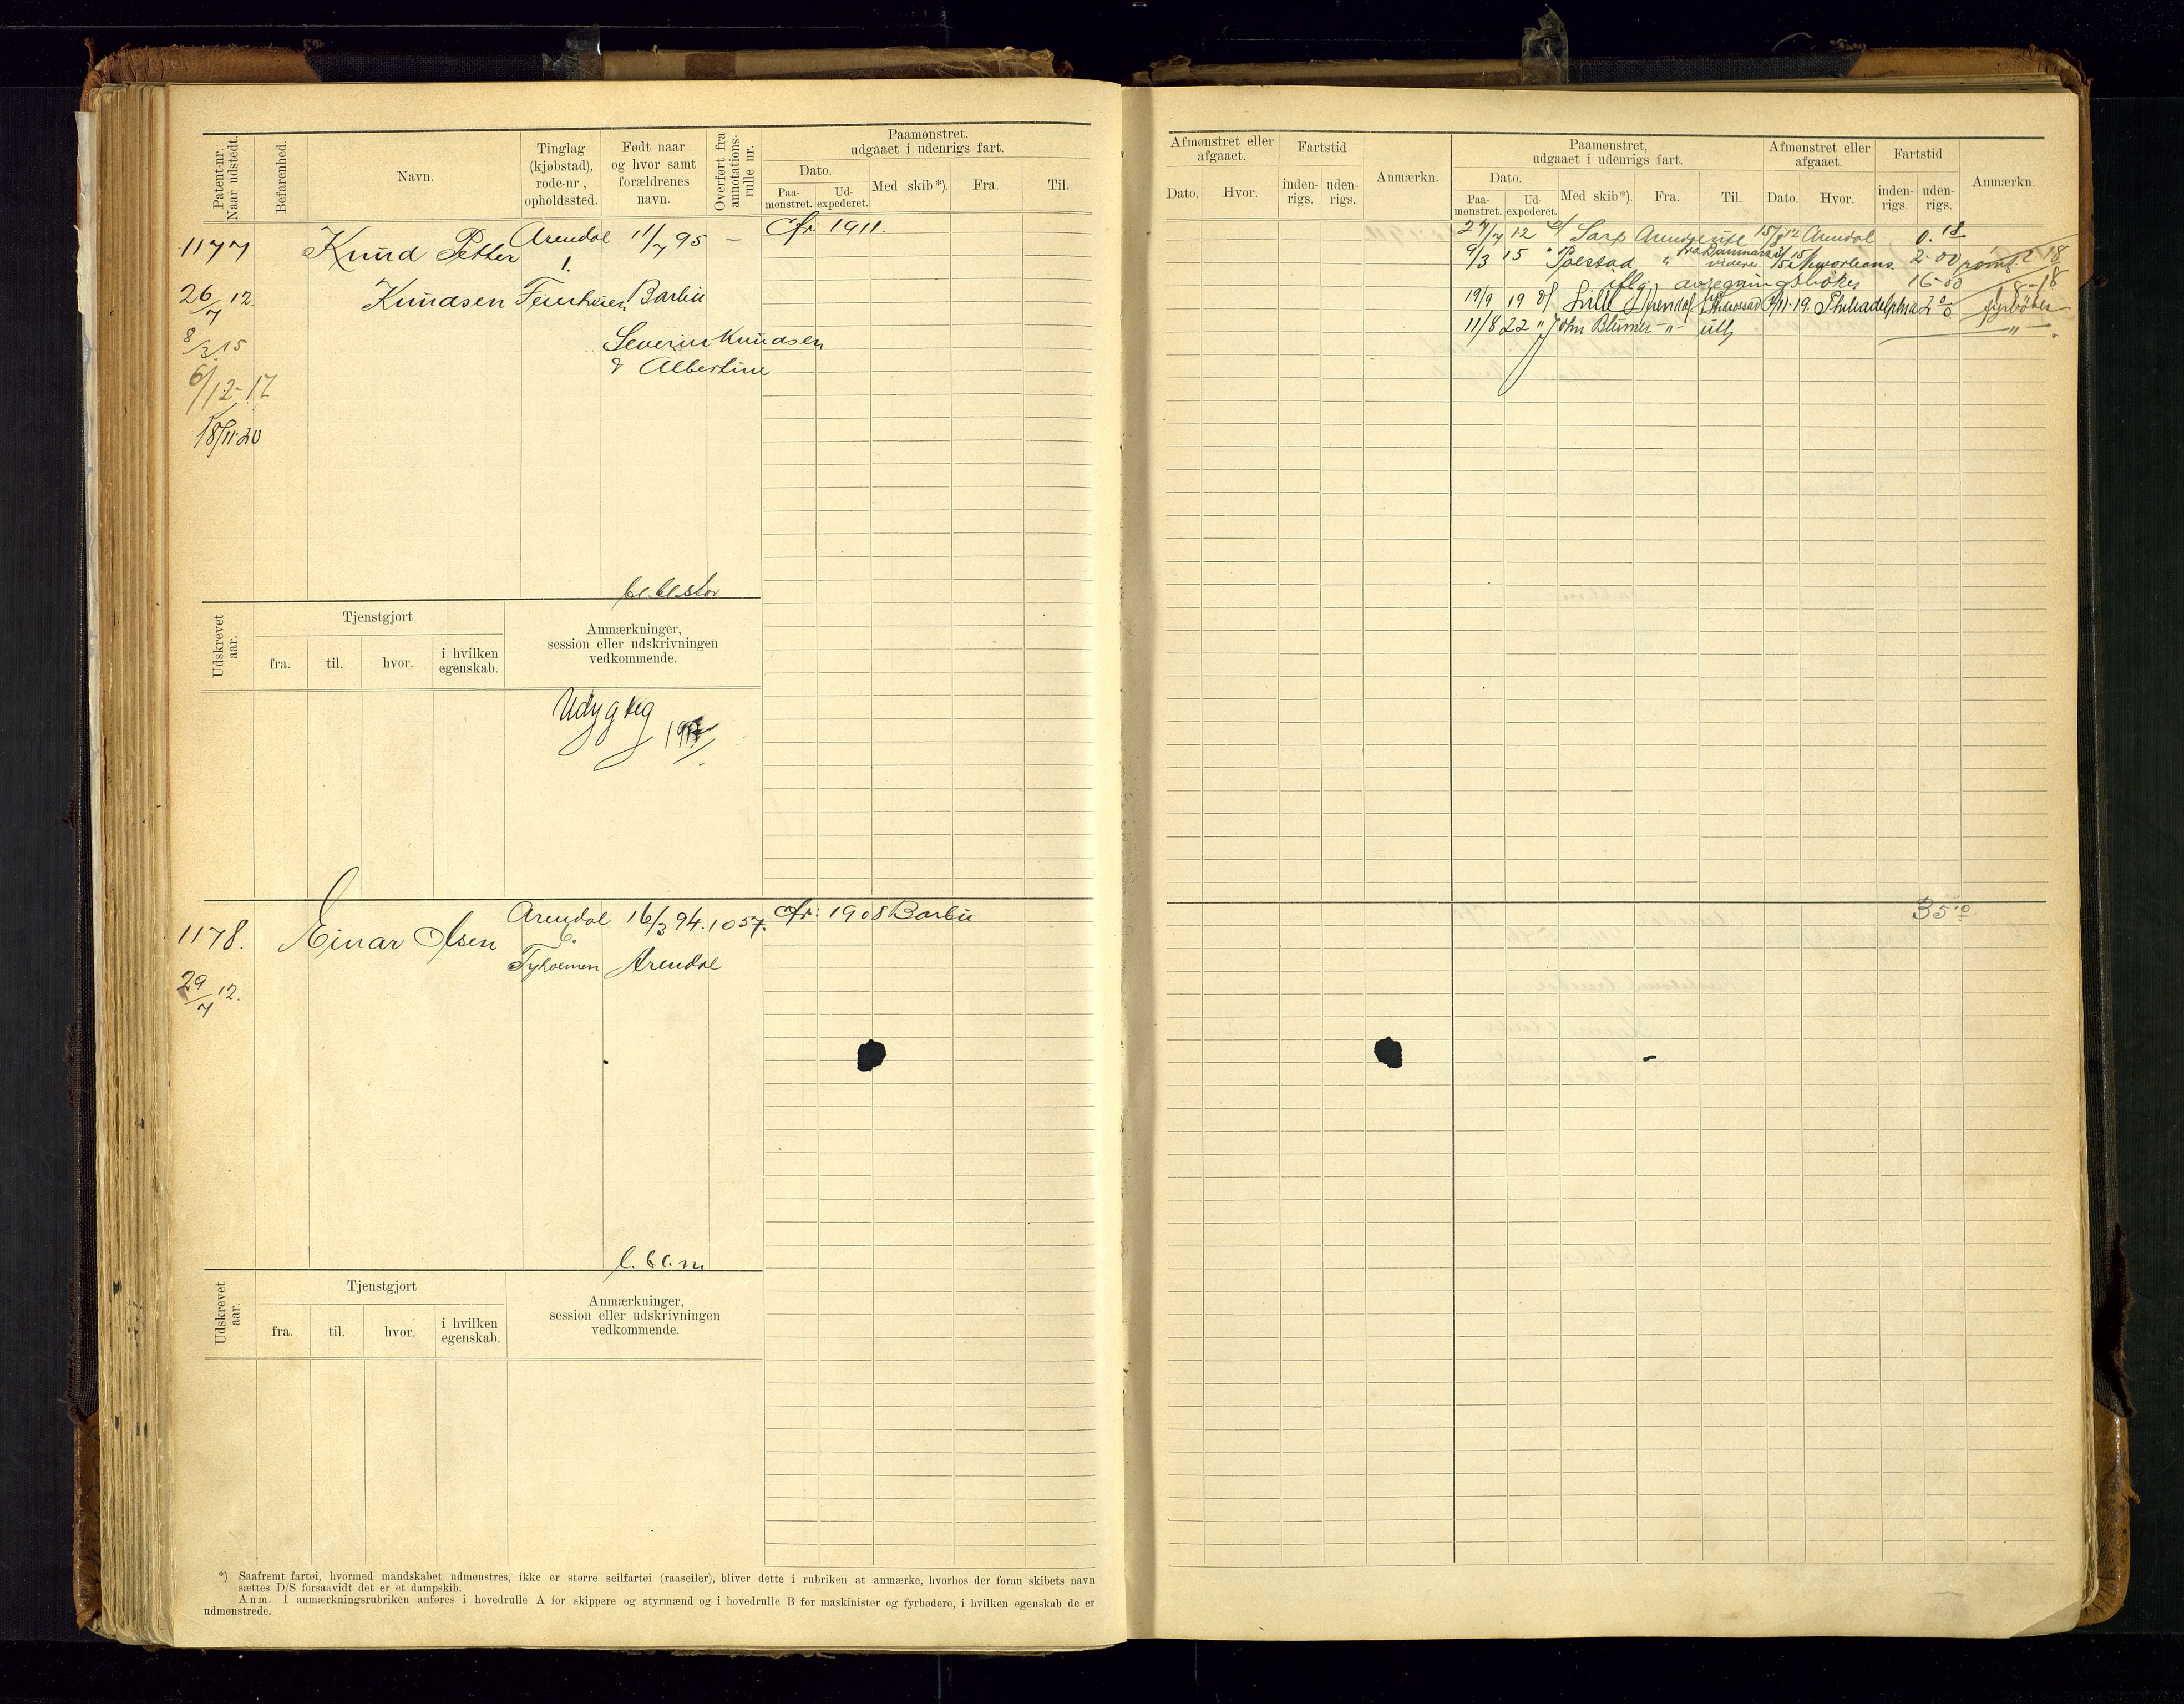 Patent-nr. Naar udstedt.
Befarenhed.
Navn.
Tinglag (kjøbstad), rode-nr, opholdssted.
Født naar og hvor samt forældrenes navn.
Overført fra annotations-rulle nr.
Paamønstret, udgaaet i udenrigs fart.
Dato.
Paa-mønstret.
Ud-expederet.
Med skib*).
Fra.
Til.
1177
Knud Petter
Arendal
11/7 95
—
Fr. 1911.
1.
26/7 12.
Knudsen
Feierheien
Barbu
8/3 15
Severin Knudsen
& Albertine
6/12-17
18/11-20
bl. bl. stor
Udskrevet aar.
Tjenstgjort
fra.
til.
hvor.
i hvilken egenskab.
Anmærkninger, session eller udskrivningen vedkommende.
Udygtig
1178.
Einar Olsen
Arendal
16/3 94.
1057.
Fr: 1908 Barbu
6
Tyholmen
Arendal
29/7 12.
l. bl. m
Udskrevet aar.
Tjenstgjort
fra.
til.
hvor.
i hvilken egenskab.
Anmærkninger, session eller udskrivningen vedkommende.
*) Saafremt fartøi, hvormed mandskabet udmønstres, ikke er større seilfartøi (raaseiler), bliver dette i rubriken at anmærke, hvorhos der foran skibets navn
sættes D/S forsaavidt det er et dampskib.
Anm. I anmærkningsrubriken anføres i hovedrulle A for skippere og styrmænd og i hovedrulle B for maskinister og fyrbødere, i hvilken egenskab de er
udmønstrede.
Afmønstret eller afgaaet.
Dato.
Hvor.
Fartstid
inden-rigs.
uden-rigs.
Anmærkn.
Paamønstret, udgaaet i udenrigs fart.
Dato.
Paa-mønstret.
Ud-expederet.
Med skib*).
Fra.
Til.
Afmønstret eller afgaaet.
Dato.
Hvor.
Fartstid
inden-rigs.
uden-rigs.
Anmærkn.
27/7 12 Sarp Arendal ute 15/8 12 Arendal 0.18
9/3 15 " Polstad " fra Danmark videre Neworleans 2-00 2-18
iflg. avregningsbøker 16-00 18-18
19/9 19 Lilly Arendal 11-19. Philadelphia fyrbøter
11/8 22 " John Blumer -"- utl. -"-
35